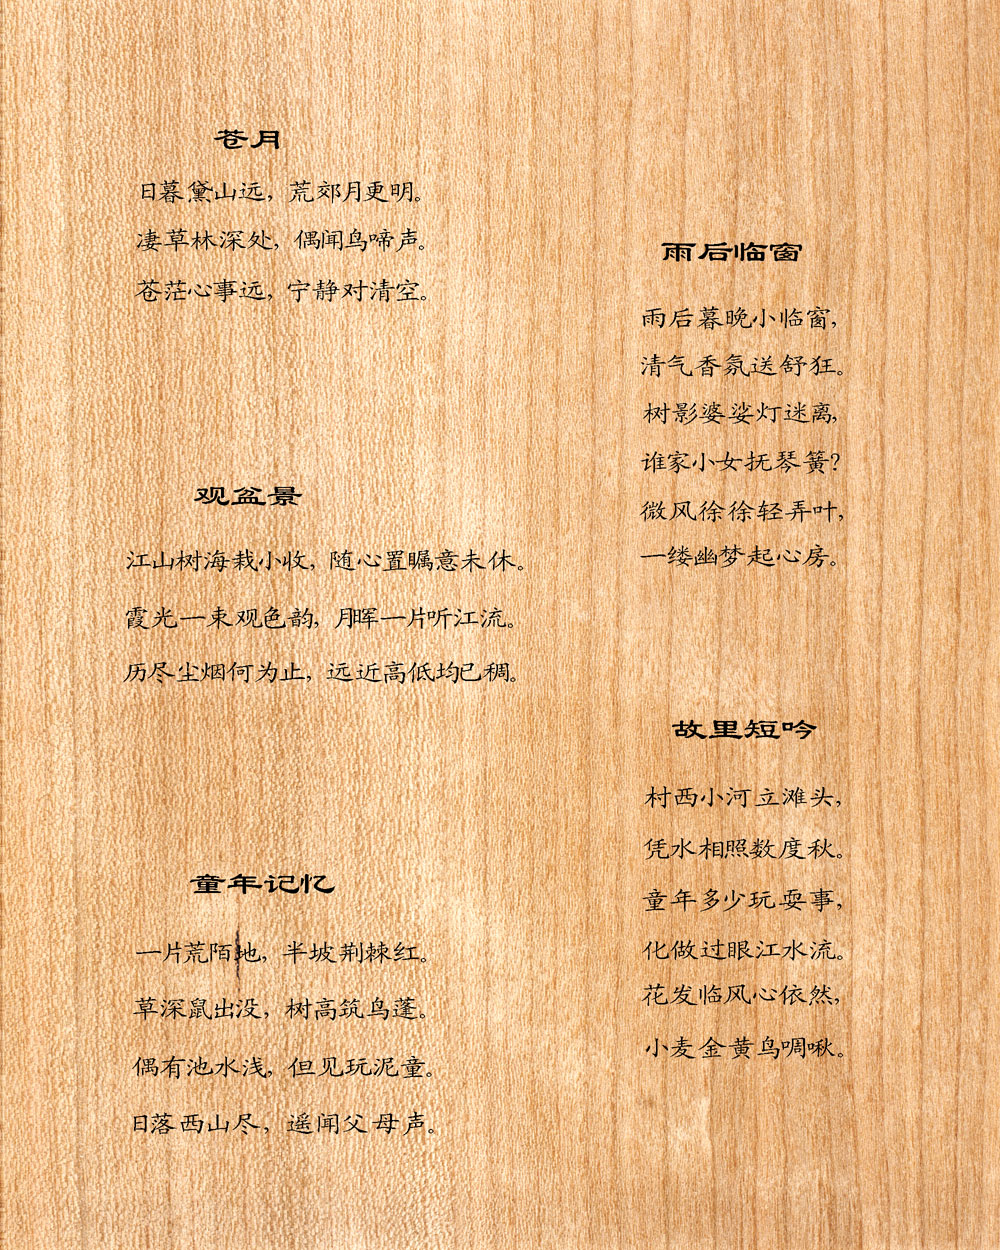 苍月
日暮黛山远，荒郊月更明。
凄草林深处，偶闻鸟啼声。
苍茫心事远，宁静对清空。
观盆景
江山树海栽小收，随心置瞩意未休。
霞光一束观色韵，月晖一片听江流。
历尽尘烟何为止，远近高低均已稠。
童年记忆
一片荒陌地，半坡荆棘红。
草深鼠出没，树高筑鸟蓬。
偶有池水浅，但见玩泥童。
日落西山尽，遥闻父母声。
雨后临窗
雨后暮晚小临窗，
清气香氛送舒狂。
树影婆娑灯迷离，
谁家小女抚琴簧？
微风徐徐轻弄叶，
一缕幽梦起心房。
故里短吟
村西小河立滩头，
凭水相照数度秋。
童年多少玩耍事，
化做过眼江水流。
花发临风心依然，
小麦金黄鸟啁啾。